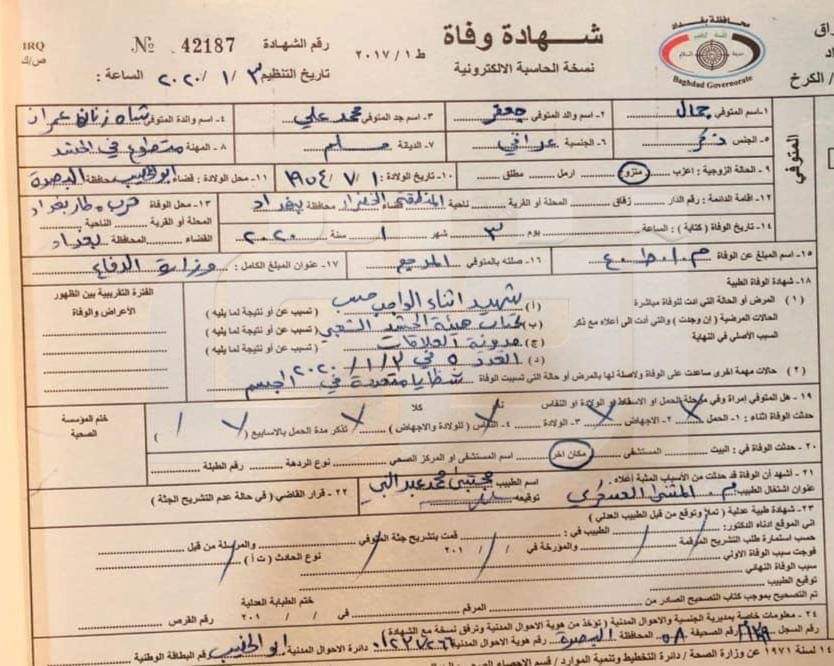 محافظة بغداد
Baghdad Governorate
شهادة وفاة
نسخة الحاسبة الالكترونية
ط ٢٠١٧/١
IRQ
ص/ك
رقم الشهادة 42187 №
تاريخ التنظيم ٣ / ١ / ٢٠٢٠ الساعة :
/ الكرخ
المتوفي
١- اسم المتوفي جمال ٢- اسم والد المتوفي جعفر ٣- اسم جد المتوفي محمد علي ٤- اسم والدة المتوفي شاه زنان عمران
٥- الجنس ذكر ٦- الجنسية عراقي ٧- الديانة مسلم ٨- المهنة متطوع في الحشد
٩- الحالة الزوجية : اعزب متزوج ارمل مطلق ١٠- تاريخ الولادة : ١ / ٧ / ١٩٥٤ ١١- محل الولادة : قضاء ابو الخصيب محافظة البصرة
١٢- اقامة الدائمة : رقم الدار زقاق المحلة أو القرية ناحية المنطقة الخضراء قضاء محافظة بغداد
١٣- محل الوفاة قرب مطار بغداد
المحلة أو القرية الناحية
القضاء المحافظة بغداد
١٤- تاريخ الوفاة (كتابة) : الساعة يوم ٣ شهر ١ سنة ٢٠٢٠
١٥- اسم المبلغ عن الوفاة ١٦- صلته بالمتوفي المرجع ١٧- عنوان المبلغ الكامل : وزارة الدفاع
١٨- شهادة الوفاة الطبية
(١) المرض أو الحالة التي ادت للوفاة مباشرة
الحالات المرضية (إن وجدت) والتي أدت الى أعلاه مع ذكر
السبب الأصلي في النهاية
(أ) شهيد اثناء الواجب حسب (تسبب عن أو نتيجة لما يليه)
(ب) كتاب هيئة الحشد الشعبي (تسبب عن أو نتيجة لما يليه)
(ج) مديرية العلاقات (تسبب عن أو نتيجة لما يليه)
(د) العدد ٥ في ٢ / ١ / ٢٠٢٠
الفترة التقريبية بين الظهور
الأعراض والوفاة
(٢) حالات مهمة اخرى ساعدت على الوفاة ولاصلة لها بالمرض أو حالة التي تسببت الوفاة شظايا متعددة في الجسم
١٩- هل المتوفي إمرأة وفي مرحلة الحمل او الاسقاط او الولادة او النفاس كلا
وفاة اثناء : ١- الحمل ٢- الاجهاض ٣- الولادة ٤- النفاس (للولادة والاجهاض) تذكر مدة الحمل بالاسابيع ( )
ختم المؤسسة
الصحية
٢٠- حدثت الوفاة في : البيت المستشفى مكان اخر اسم المستشفى او المركز الصحي نوع الردهة رقم الطبلة
٢١- أشهد أن الوفاة قد حدثت من الأسباب المثبة أعلاه
عنوان اشتغال الطبيب م. المثنى العسكري
اسم الطبيب مجتبى محمد عبد النبي
توقيعه
٢٢- قرار القاضي ( في حالة عدم التشريح الجثة )
٢٣- شهادة طبية عدلية ( تملأ وتوقع من قبل الطبيب العدلي )
اني الموقع ادناه الدكتور: الطبيب في : قمت بتشريح جثة المتوفي والمرسلة من قبل
حسب استمارة طلب التشريح المرقمة والمؤرخة في / / ٢٠١ نوع الحادث ( ت أ )
فوجدت سبب الوفاة الاولي
سبب الوفاة النهائي
توقيع الطبيب
تم التصحيح بموجب كتاب التصحيح الصادر من المرقم في / / ٢٠١ ختم الطبابة العدلية رقم القرص
٢٤- معلومات خاصة بمديرية الجنسية والاحوال المدنية ( تؤخذ من هوية الاحوال المدنية وترفق نسخة مع الشهادة )
رقم السجل رقم الصحيفة المحافظة البصرة رقم هوية الاحوال المدنية دائرة الاحوال المدنية ابو الخصيب رقم البطاقة الوطنية
لسنة ١٩٧١ عن وزارة الصحة / دائرة التخطيط وتنمية الموارد / قسم الاحصاء